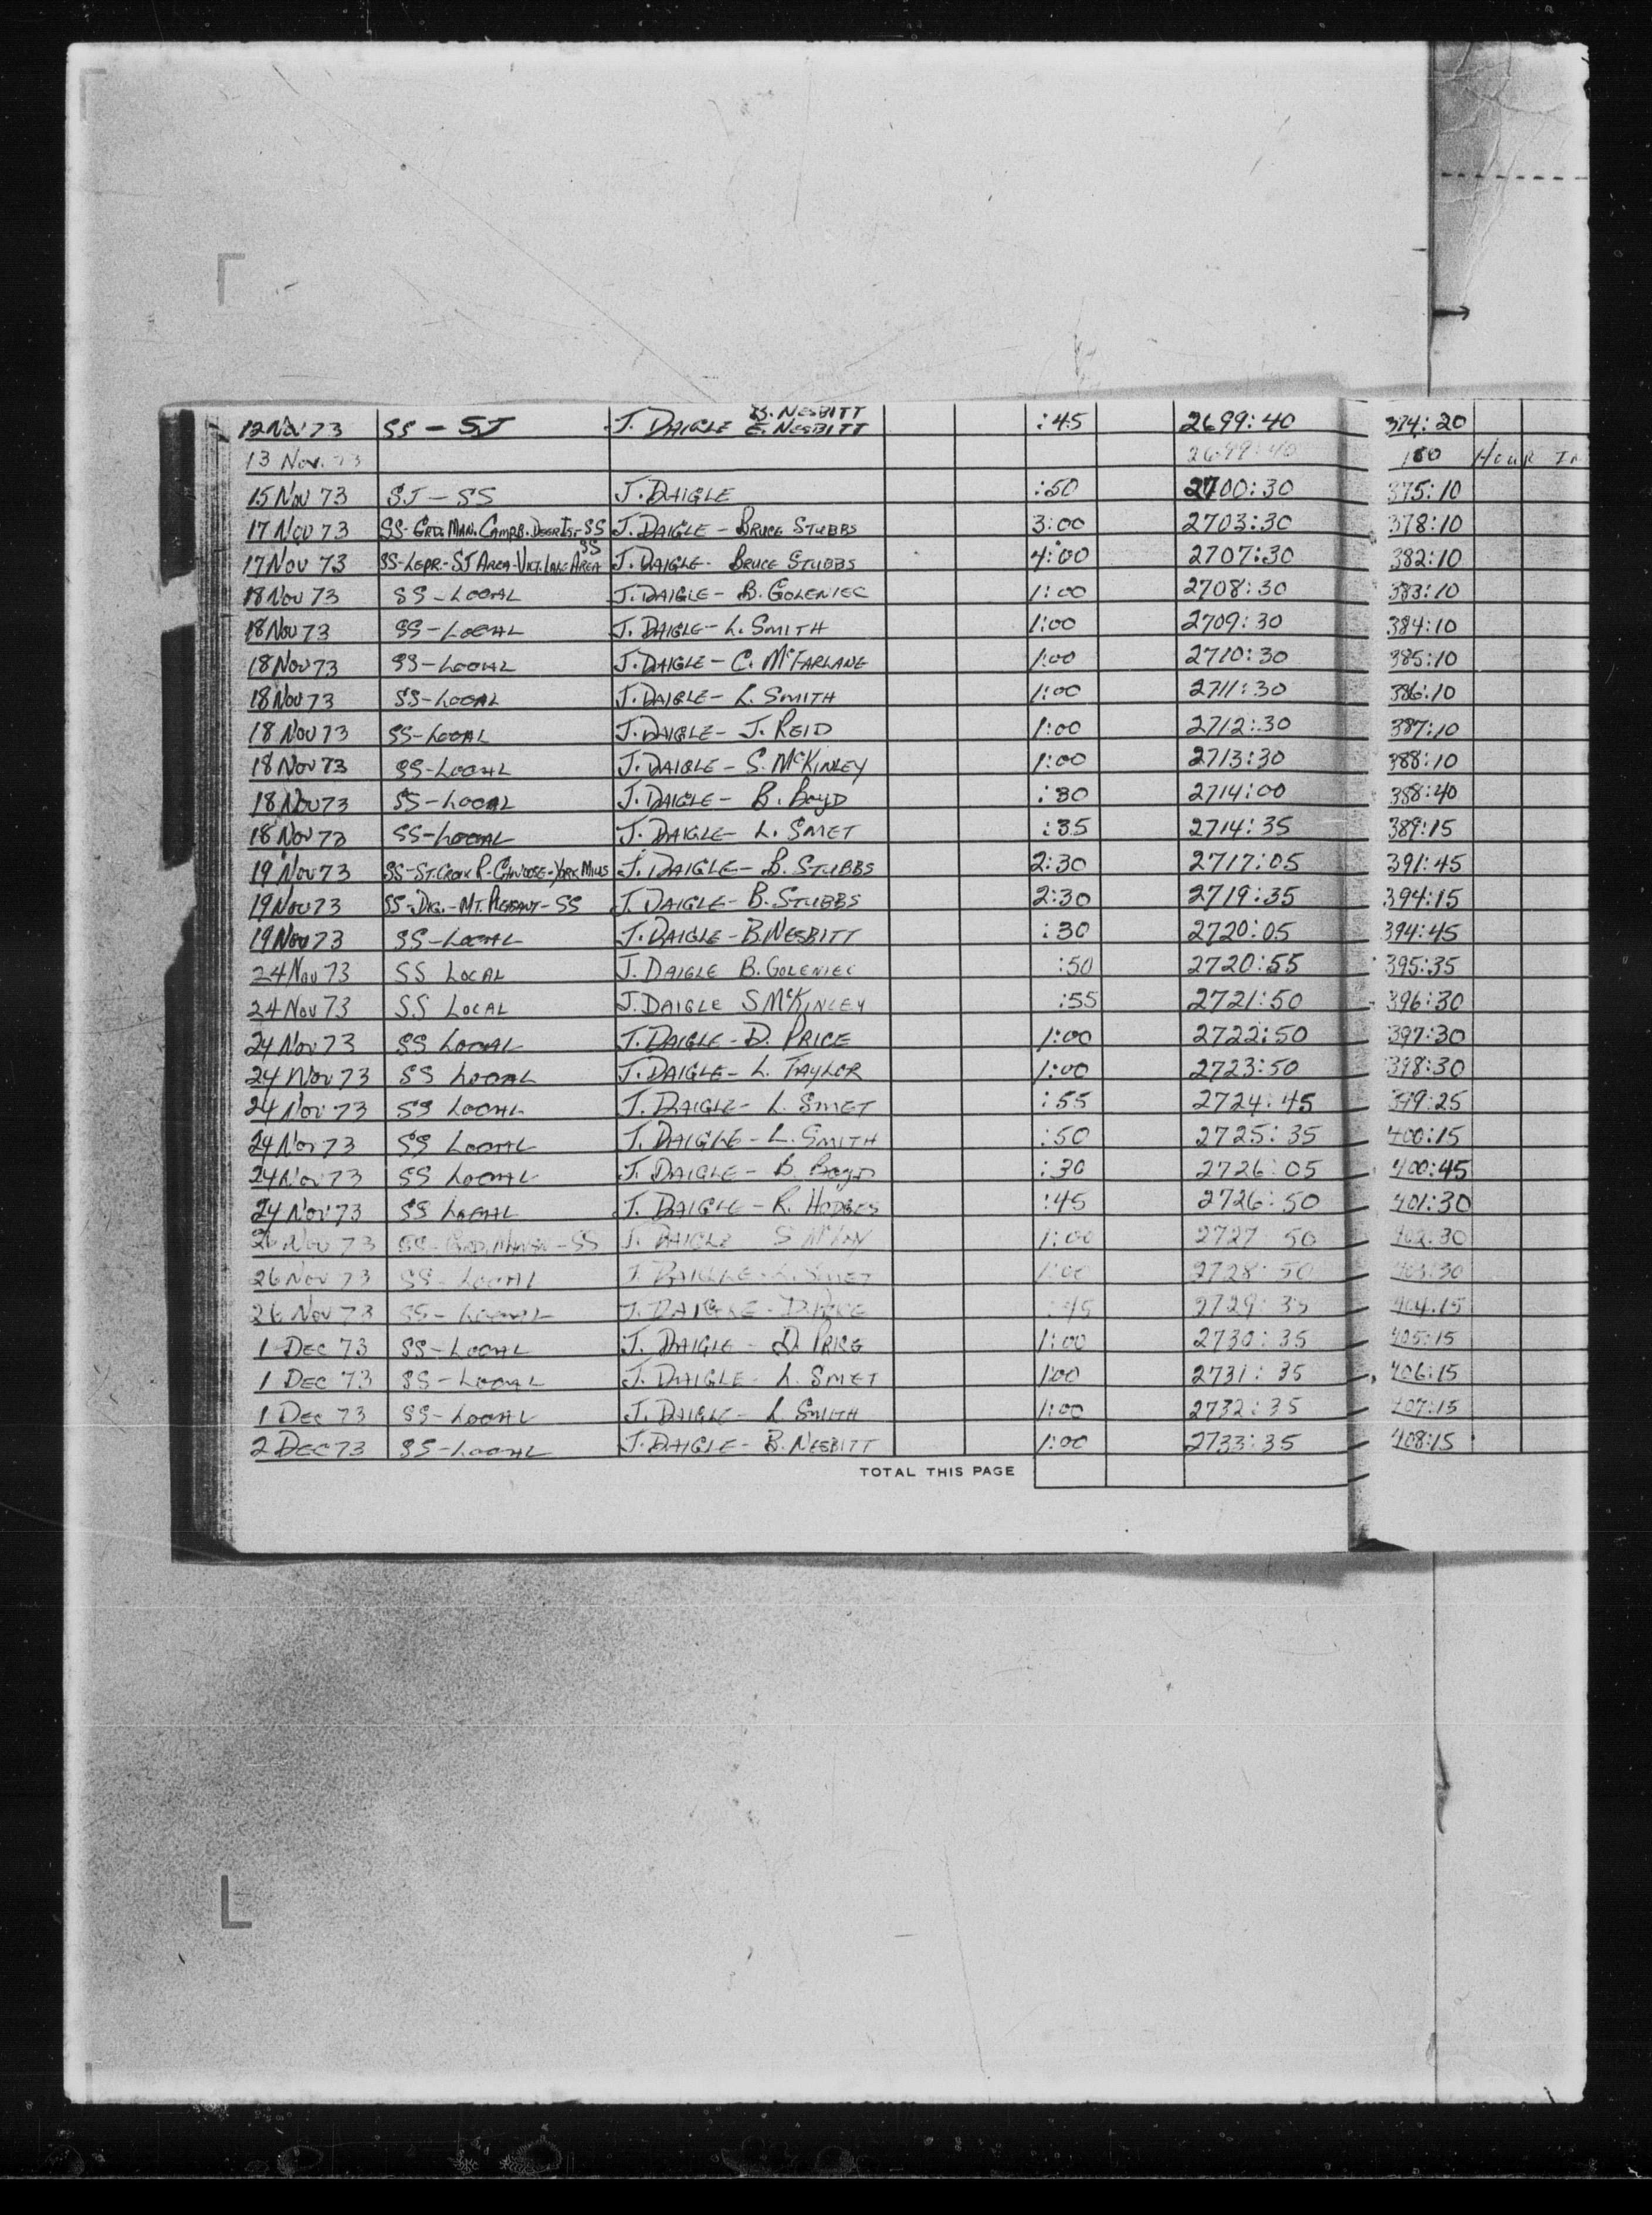 B. NESBITT
12 Nov 73 SS - SJ J. DAIGLE E. NESBITT :45 2699:40 374:20
13 Nov. 73 2699:40 100 HOUR IN
15 Nov 73 SJ - SS J. DAIGLE :50 2700:30 375:10
17 Nov 73 SS- GRD. MAN. CAMPB. DEER IS - SS J. DAIGLE - BRUCE STUBBS 3:00 2703:30 378:10
17 Nov 73 SS-LEPR.- SJ AREA - VICT. LAKE AREA SS J. DAIGLE - BRUCE STUBBS 4:00 2707:30 382:10
18 Nov 73 SS - LOCAL J. DAIGLE - B. GOLENIEC 1:00 2708:30 383:10
18 Nov 73 SS - LOCAL J. DAIGLE - L. SMITH 1:00 2709:30 384:10
18 Nov 73 SS - LOCAL J. DAIGLE - C. McFARLANE 1:00 2710:30 385:10
18 Nov 73 SS - LOCAL J. DAIGLE - L. SMITH 1:00 2711:30 386:10
18 Nov 73 SS - LOCAL J. DAIGLE - J. REID 1:00 2712:30 387:10
18 Nov 73 SS - LOCAL J. DAIGLE - S. McKINLEY 1:00 2713:30 388:10
18 Nov 73 SS - LOCAL J. DAIGLE - B. BOYD :30 2714:00 388:40
18 Nov 73 SS - LOCAL J. DAIGLE - L. SMET :35 2714:35 389:15
19 Nov 73 SS - ST. CROIX R - CANOOSE - YORK MILLS J. DAIGLE - B. STUBBS 2:30 2717:05 391:45
19 Nov 73 SS - DIG. - MT. PLEASANT - SS J. DAIGLE - B. STUBBS 2:30 2719:35 394:15
19 Nov 73 SS - LOCAL J. DAIGLE - B. NESBITT :30 2720:05 394:45
24 Nov 73 SS LOCAL J. DAIGLE B. GOLENIEC :50 2720:55 395:35
24 Nov 73 SS LOCAL J. DAIGLE S McKINLEY :55 2721:50 396:30
24 Nov 73 SS LOCAL J. DAIGLE - D. PRICE 1:00 2722:50 397:30
24 Nov 73 SS LOCAL J. DAIGLE - L. TAYLOR 1:00 2723:50 398:30
24 Nov 73 SS LOCAL J. DAIGLE - L. SMET :55 2724:45 399:25
24 Nov 73 SS LOCAL J. DAIGLE - L. SMITH :50 2725:35 400:15
24 Nov 73 SS LOCAL J. DAIGLE - B. BOYD :30 2726:05 400:45
24 Nov 73 SS LOCAL J. DAIGLE - R. HODGES :45 2726:50 401:30
26 Nov 73 SS - GRD. MANAN - SS J. DAIGLE 1:00 2727 50 402:30
26 Nov 73 SS - LOCAL J. DAIGLE - L. SMET 1:00 2728:50 403:30
26 Nov 73 SS - LOCAL J. DAIGLE - D. PRICE :45 2729:35 404:15
1 DEC 73 SS - LOCAL J. DAIGLE - D. PRICE 1:00 2730:35 405:15
1 DEC 73 SS - LOCAL J. DAIGLE - L. SMET 1:00 2731:35 406:15
1 DEC 73 SS - LOCAL J. DAIGLE - L SMITH 1:00 2732:35 407:15
2 DEC 73 SS - LOCAL J. DAIGLE - B. NESBITT 1:00 2733:35 408:15
TOTAL THIS PAGE